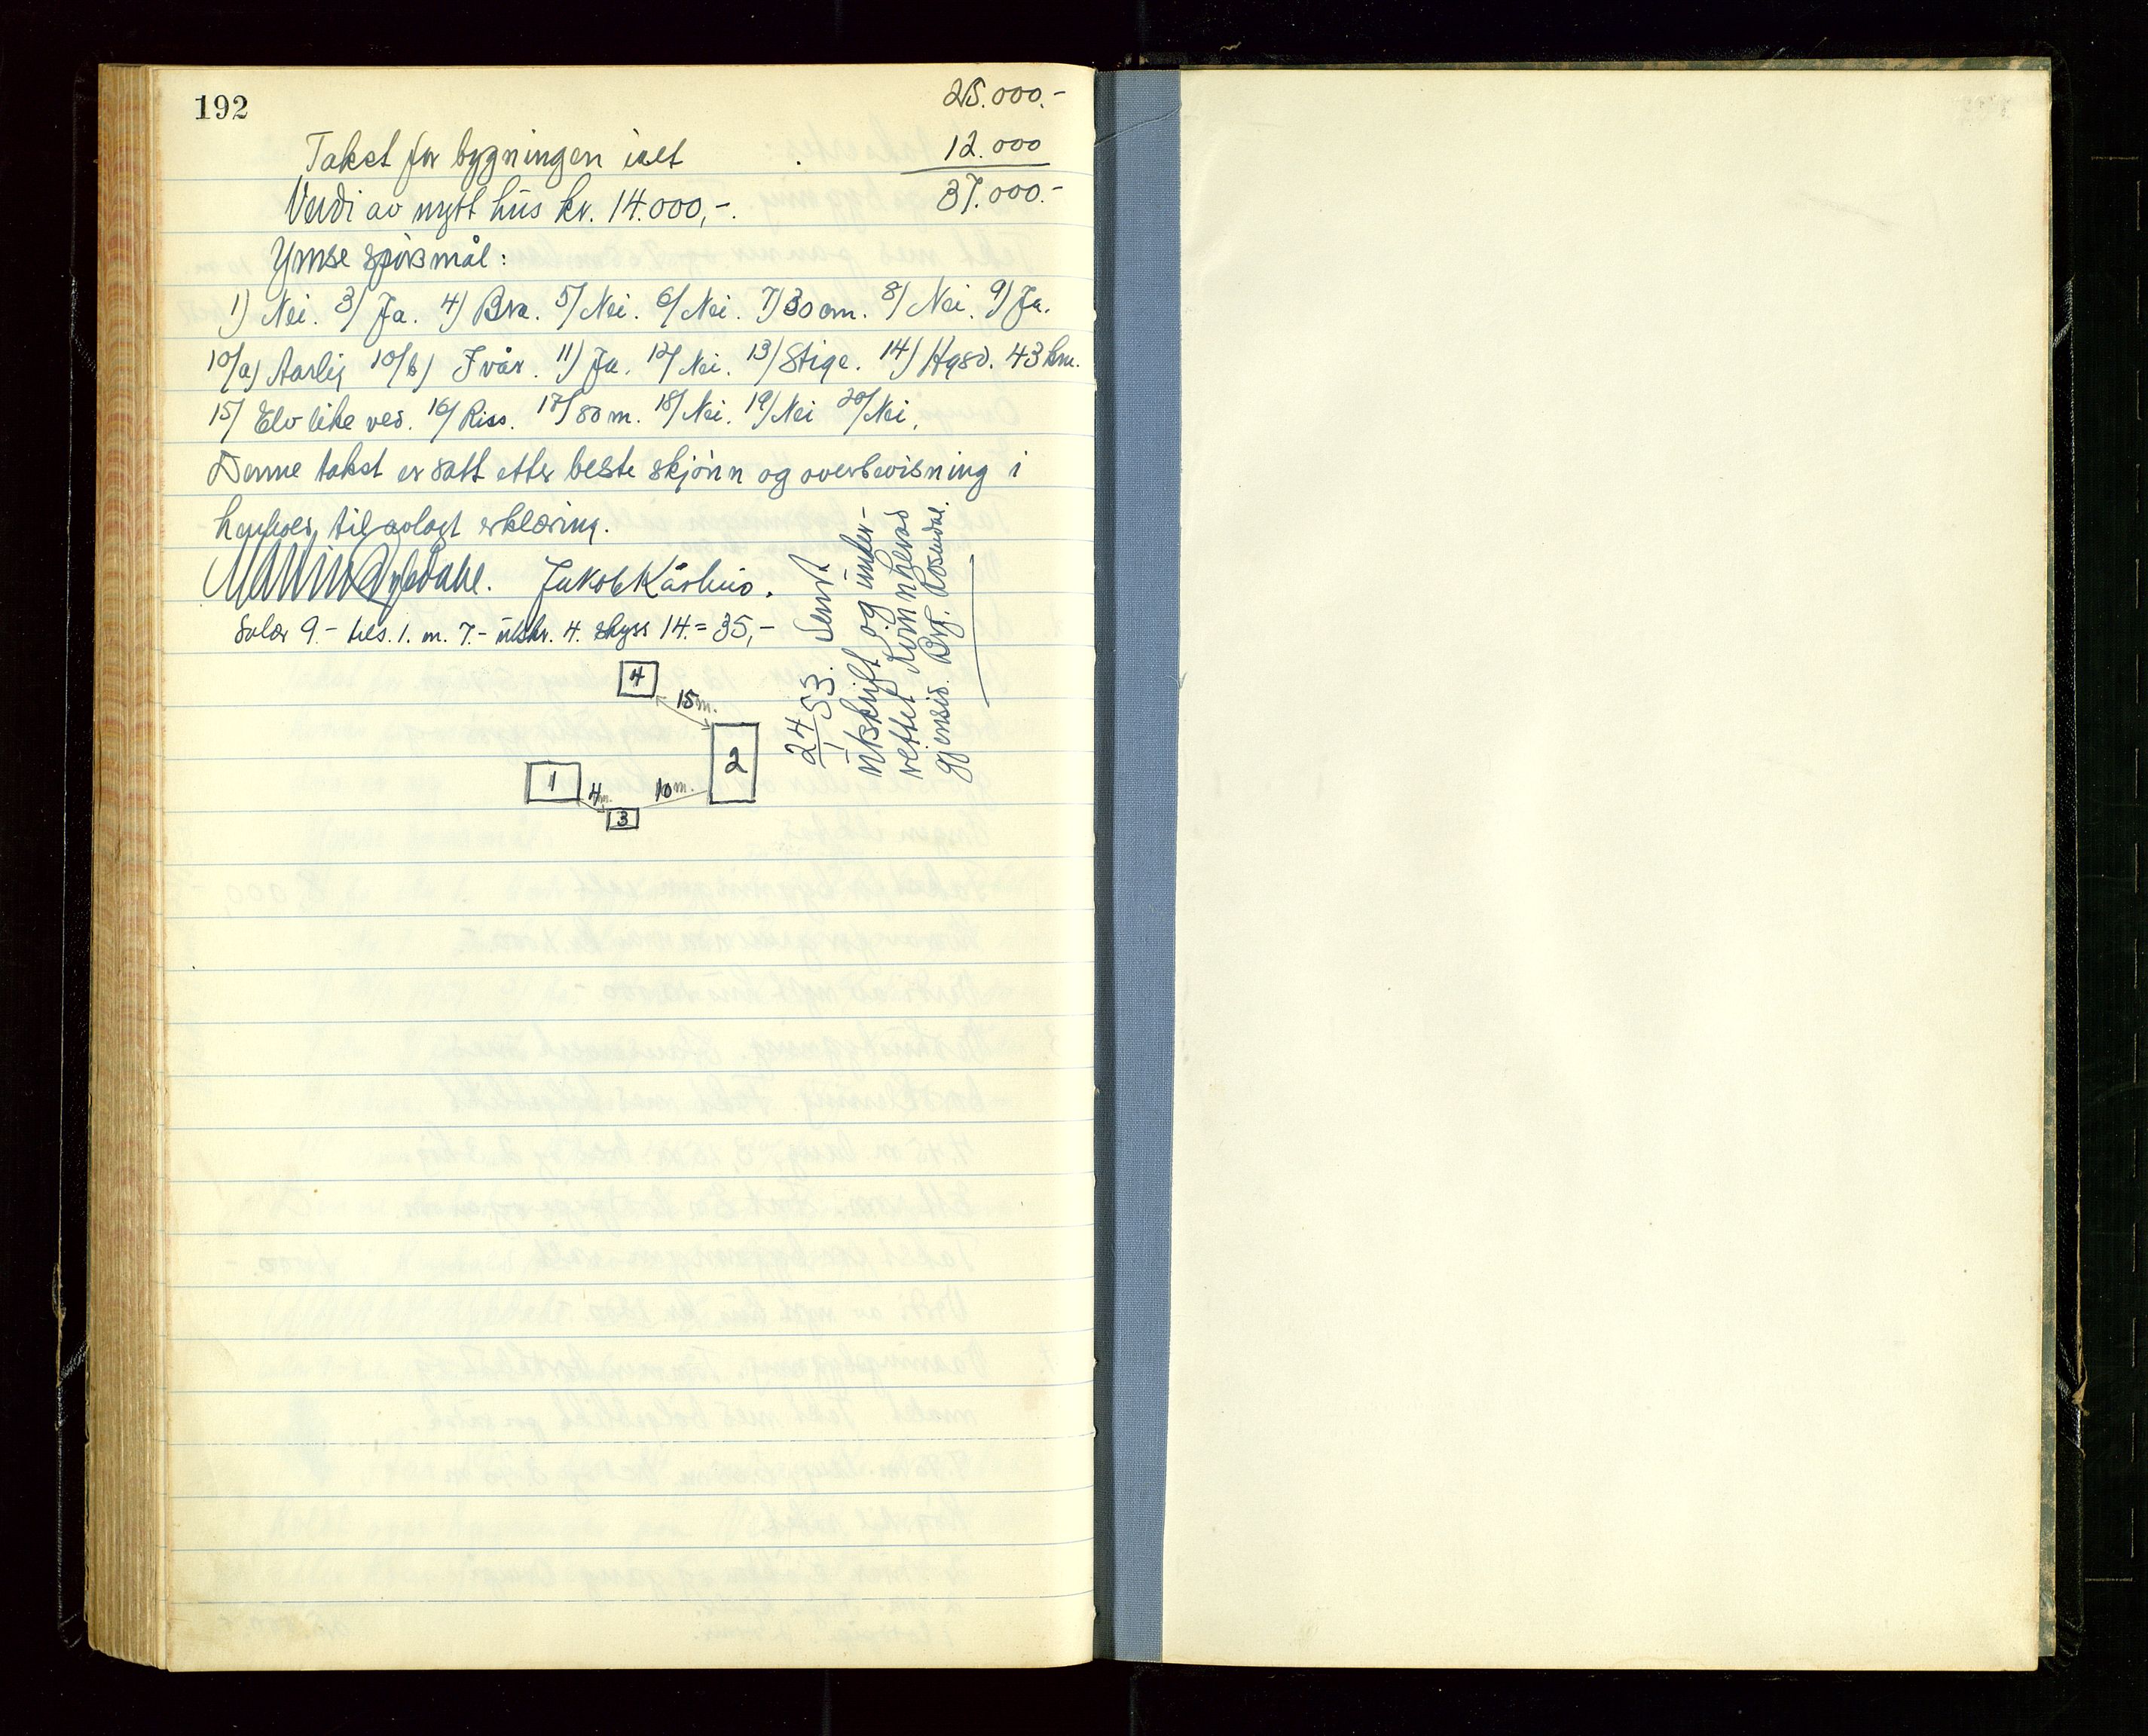 192
25.000.-
Takst for bygningen ialt 12.000
Verdi av nytt hus kr. 14.000,-. 37.000.-
Ymse spørsmål:
1) Nei. 3/ Ja. 4) Bra. 5/ Nei. 6/ Nei. 7) 30 cm. 8/ Nei. 9) Ja.
10/a) Aarlig 10/b) I vår. 11) Ja. 12/ Nei. 13) Stige. 14) Hgsd. 43 km.
15/ Elv like ved. 16/ Riss. 17/ 80 m. 18/ Nei. 19/ Nei 20/ Nei.
Denne takst er satt etter beste skjønn og overbevisning i
henhold til avlagt erklæring.
Jakob Kårhus.
Salær 9.- bes. 1. m. 7.- utskr. 4. skyss 14. = 35,-
4
15 m.
2
1
4 m.
10 m.
3
24/1 53. Sendt
utskrift og under-
rettet Kvinnherad
gjensid. Brf. Rosendal.